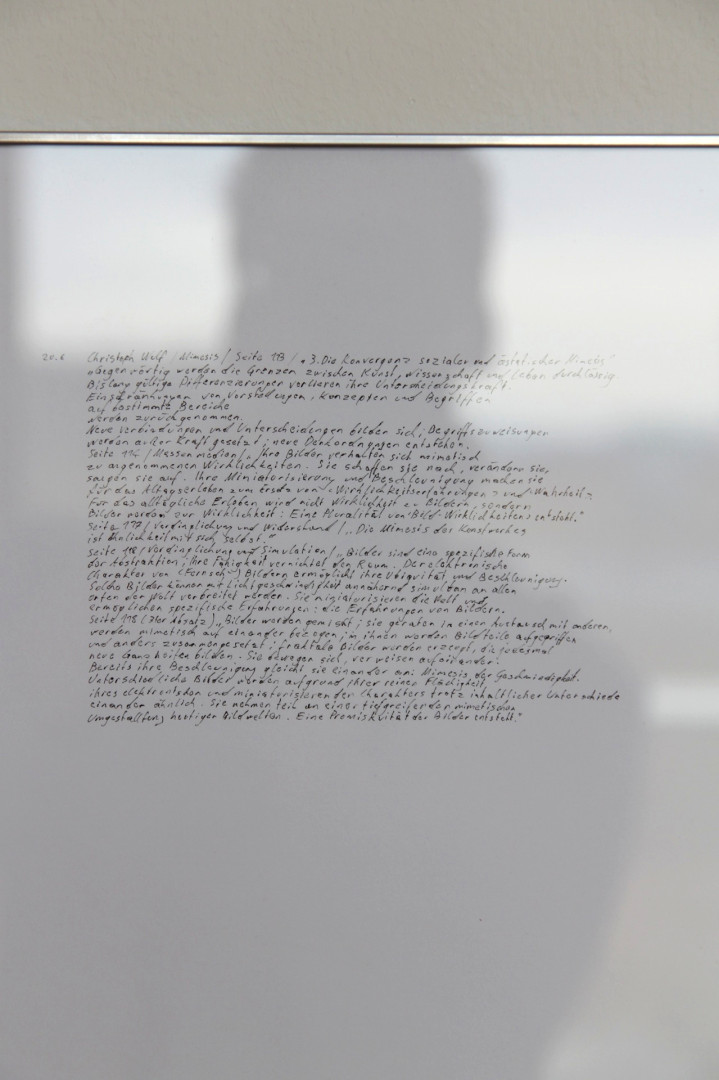 20.6 Christoph Wulf / Mimesis / Seite 113 / „3. Die Konvergenz sozialer und ästhetischer Mimesis"
Gegenwärtig werden die Grenzen zwischen Kunst, Wissenschaft und Leben durchlässig
Bislang gültige Differenzierungen verlieren ihre Unterscheidungskraft.
Einschränkungen von Vorstellungen, Konzepten und Begriffen
auf bestimmte Bereiche
werden zurückgenommen.
Neue Verbindungen und Unterscheidungen bilden sich, Begriffszuweisungen
werden außer Kraft gesetzt; neue Denkordnungen entstehen.
Seite 114 / Massenmedien / „Ihre Bilder verhalten sich mimetisch
zu angenommenen Wirklichkeiten. Sie schaffen sie nach, verändern sie,
saugen sie auf. Ihre Miniatorisierung und Beschleunigung machen sie
für das Alltagserleben zum Ersatz von ›Wirklichkeitserfahrungen‹ und ›Wahrheit‹
Für das alltägliche Erleben wird nicht Wirklichkeit zu Bildern, sondern
Bilder werden zur Wirklichkeit: Eine Pluralität von ›Bild-Wirklichkeiten‹ entsteht."
Seite / Verdinglichung und Widerstand / „Die Mimesis der Kunstwerke
ist Ähnlichkeit mit sich selbst."
Seite 118 / Verdinglichung und Simulation / „Bilder sind eine spezifische Form
der Abstraktion; Ihre Fähigkeit vernichtet den Raum. Der elektronische
Charakter von (Fernseh-) Bildern ermöglicht ihre Ubiquität und Beschleunigung.
Solche Bilder können mit Lichtgeschwindigkeit annähernd simultan an allen
Orten der Welt verbreitet werden. Sie miniatorisieren die Welt und
ermöglichen spezifische Erfahrungen: die Erfahrungen von Bildern.
Seite 118 (Absatz) „Bilder werden gemischt; sie geraten in einen Austausch mit anderen,
werden mimetisch auf einander bezogen; in ihnen werden Bildteile aufgegriffen
und anders zusammengesetzt; fraktale Bilder werden erzeugt, die jedesmal
neue Ganzheiten bilden. Sie bewegen sich, verweisen aufeinander.
Bereits ihre Beschleunigung gleicht sie einander an: Mimesis der Geschwindigkeit.
Unterschiedliche Bilder werden aufgrund ihrer reinen Flächigkeit,
ihres elektronischen und miniatorisierenden Charakters trotz inhaltlicher Unterschiede
einander ähnlich. Sie nehmen teil an einer tiefgreifenden mimetischen
Umgestaltung heutiger Bildwelten. Eine Promiskuität der Bilder entsteht."